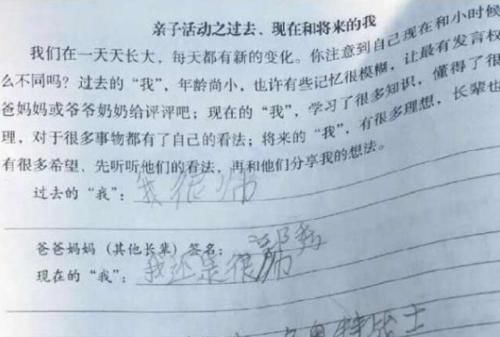 亲子活动之过去、现在和将来的我
我们在一天天长大，每天都有新的变化。你注意到自己现在和小时候
么不同吗？过去的“我”，年龄尚小，也许有些记忆很模糊，让最有发言权
爸妈妈或爷爷奶奶给评评吧；现在的“我”，学习了很多知识，懂得了很
理，对于很多事物都有了自己的看法；将来的“我”，有很多理想，长辈也
有很多希望，先听听他们的看法，再和他们分享我的想法。
过去的“我”：我很帅
爸爸妈妈（其他长辈）签名：
现在的“我”：我还是很帅
奥特战士